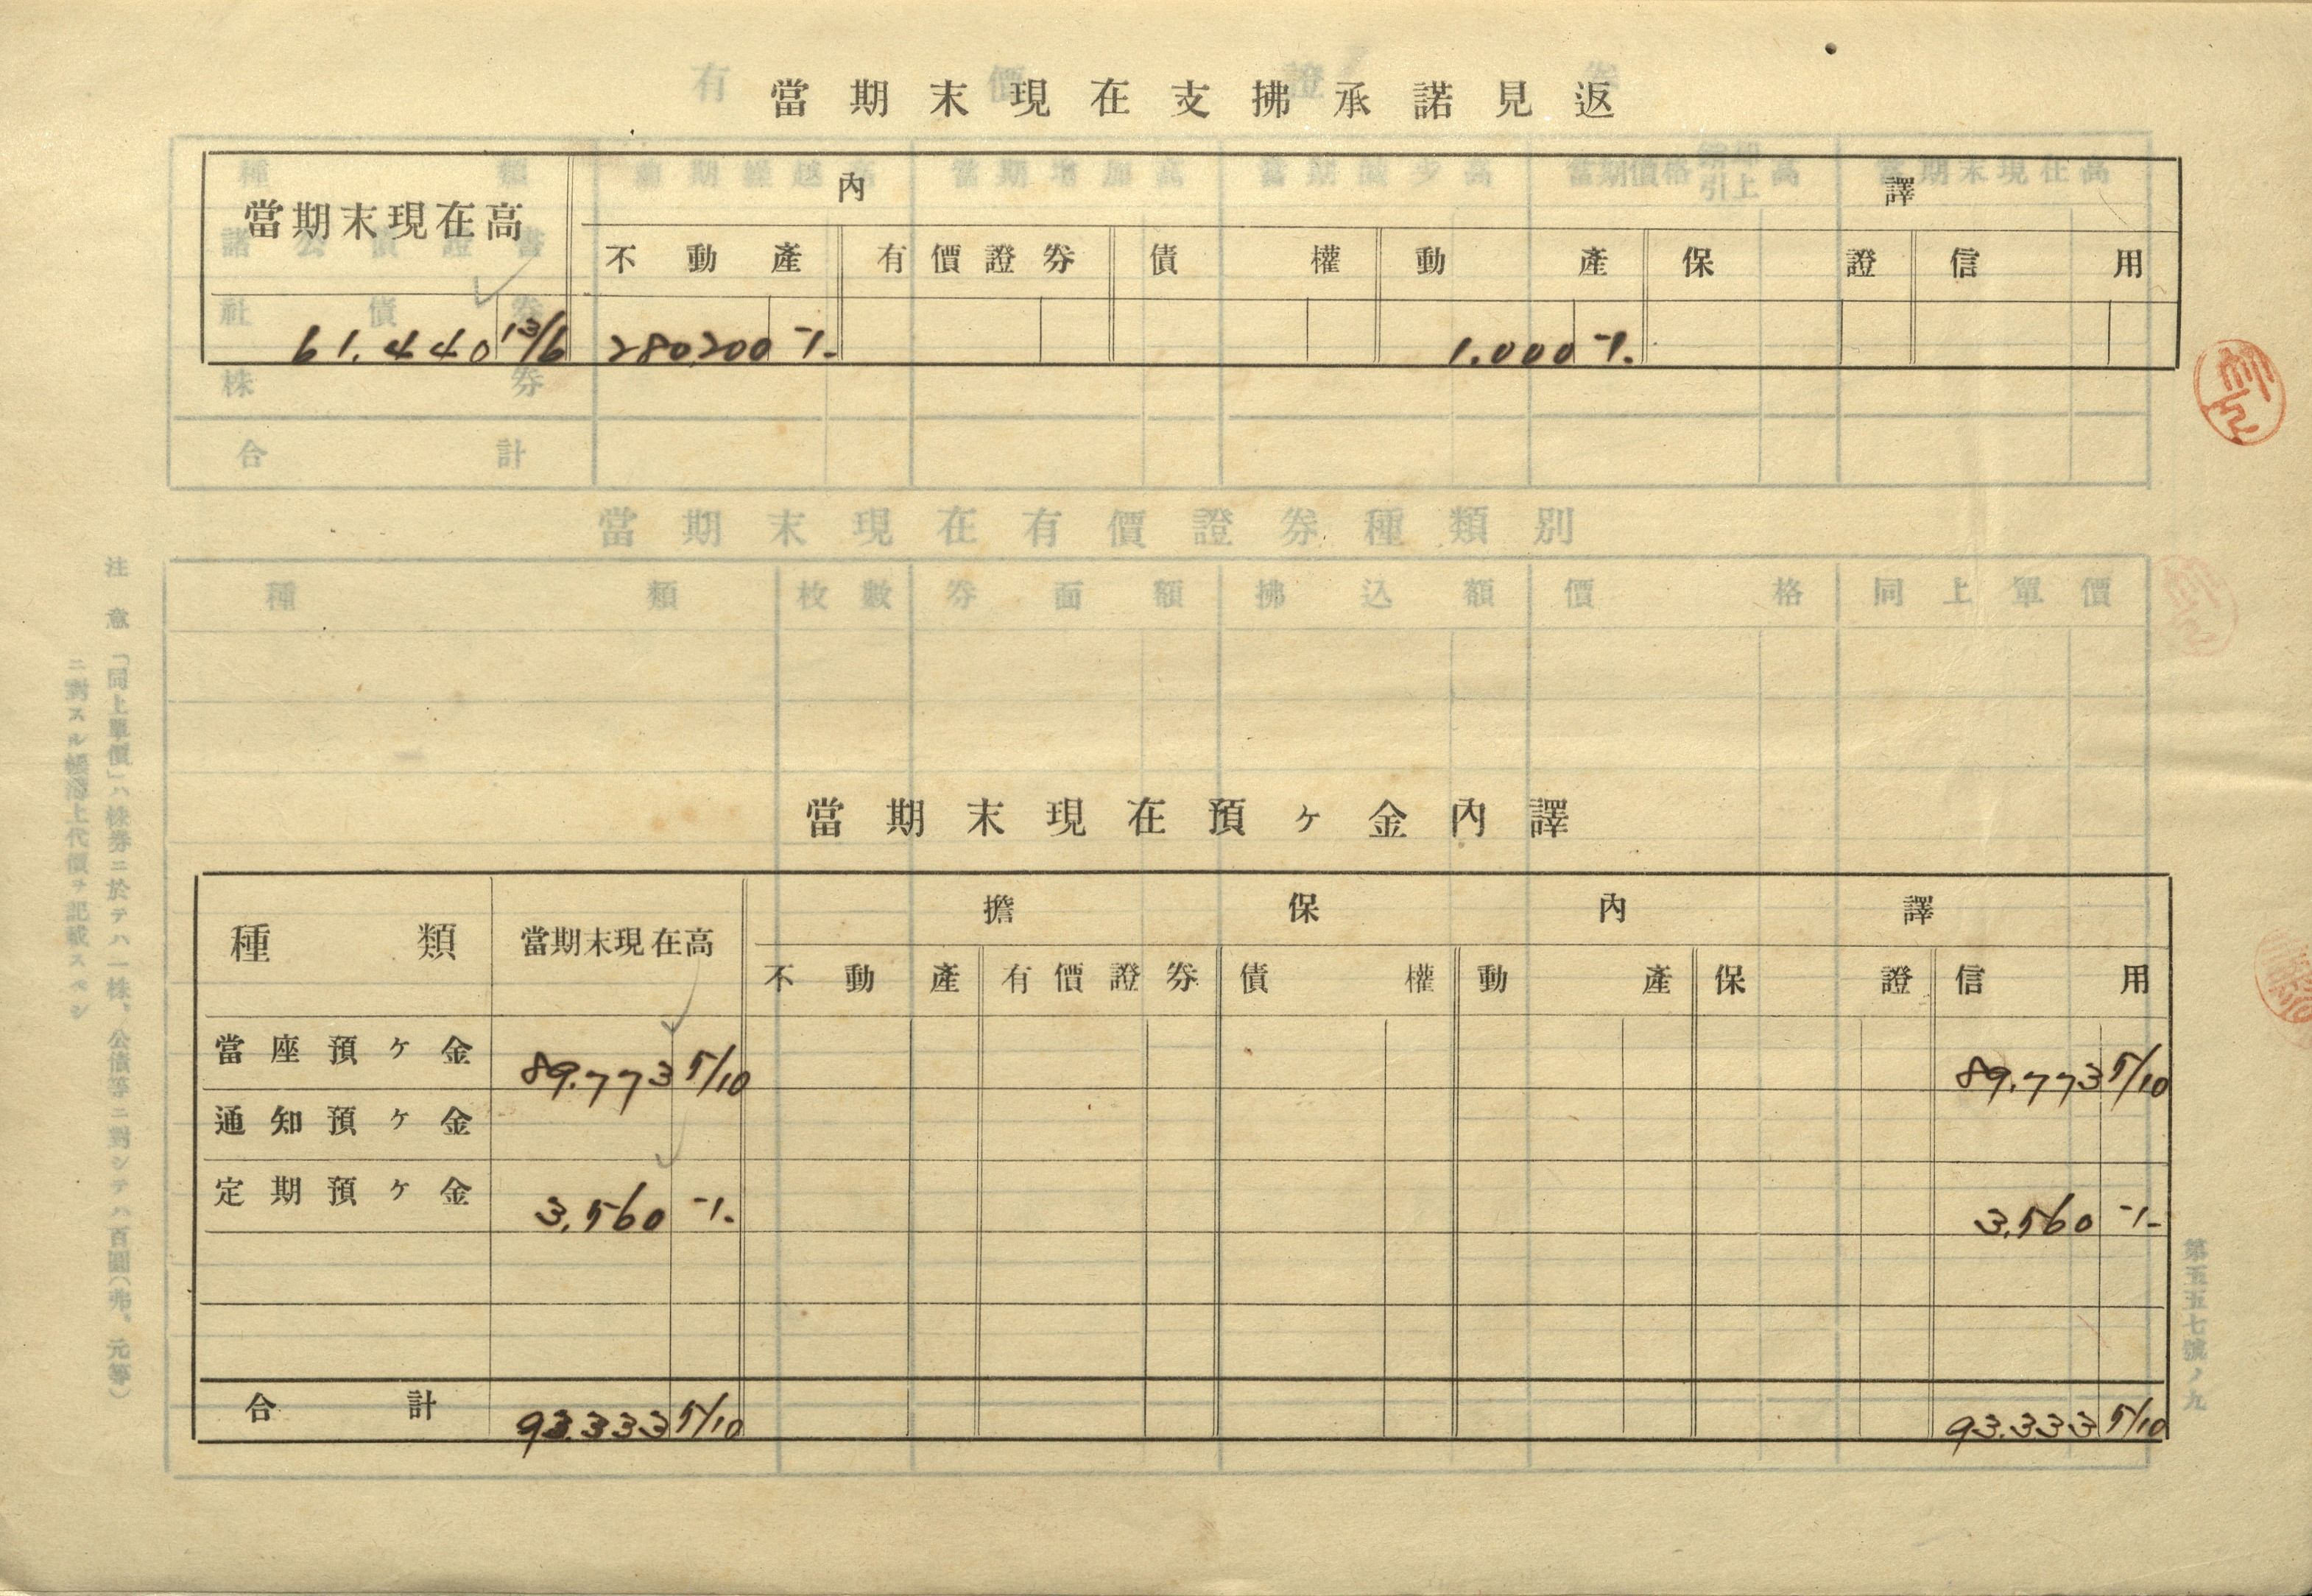 當期末現在支拂承諾見返
當期末現在高 內譯
不動產 有價證券 債權 動產 保證 信用
61.440 13/6 280,200 -1.- 1.000 -1.-
當期末現在預ヶ金內譯
種類 當期末現在高 擔保內譯
不動產 有價證券 債權 動產 保證 信用
當座預ヶ金 89.773 5/10 89.773 5/10
通知預ヶ金
定期預ヶ金 3.560 -1.- 3.560 -1-
合計 93.333 5/10 93.333 5/10
有價證券
種類 當期增加高 當期減少高 當期末現在高
諸公債證書
社債券
株券
合計
當期末現在有價證券種類別
種類 枚數 券面額 拂込額 價格 同上單價
注意「同上單價」ハ株券ニ於テハ一株、公債等ニ對シテハ百圓(弗、元等)
ニ對スル帳簿上代價ヲ記載スベシ
第五五七號ノ九